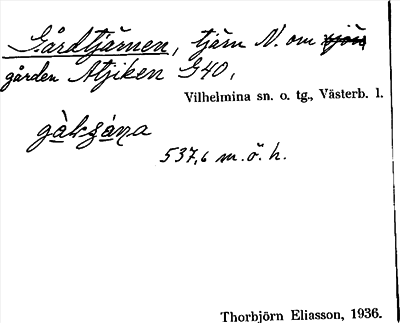 Gårdtjärnen, tjärn N. om
gården Atjiken G40,
Vilhelmina sn. o. tg., Västerb. l.
537,6 m. ö. h.
Thorbjörn Eliasson, 1936.